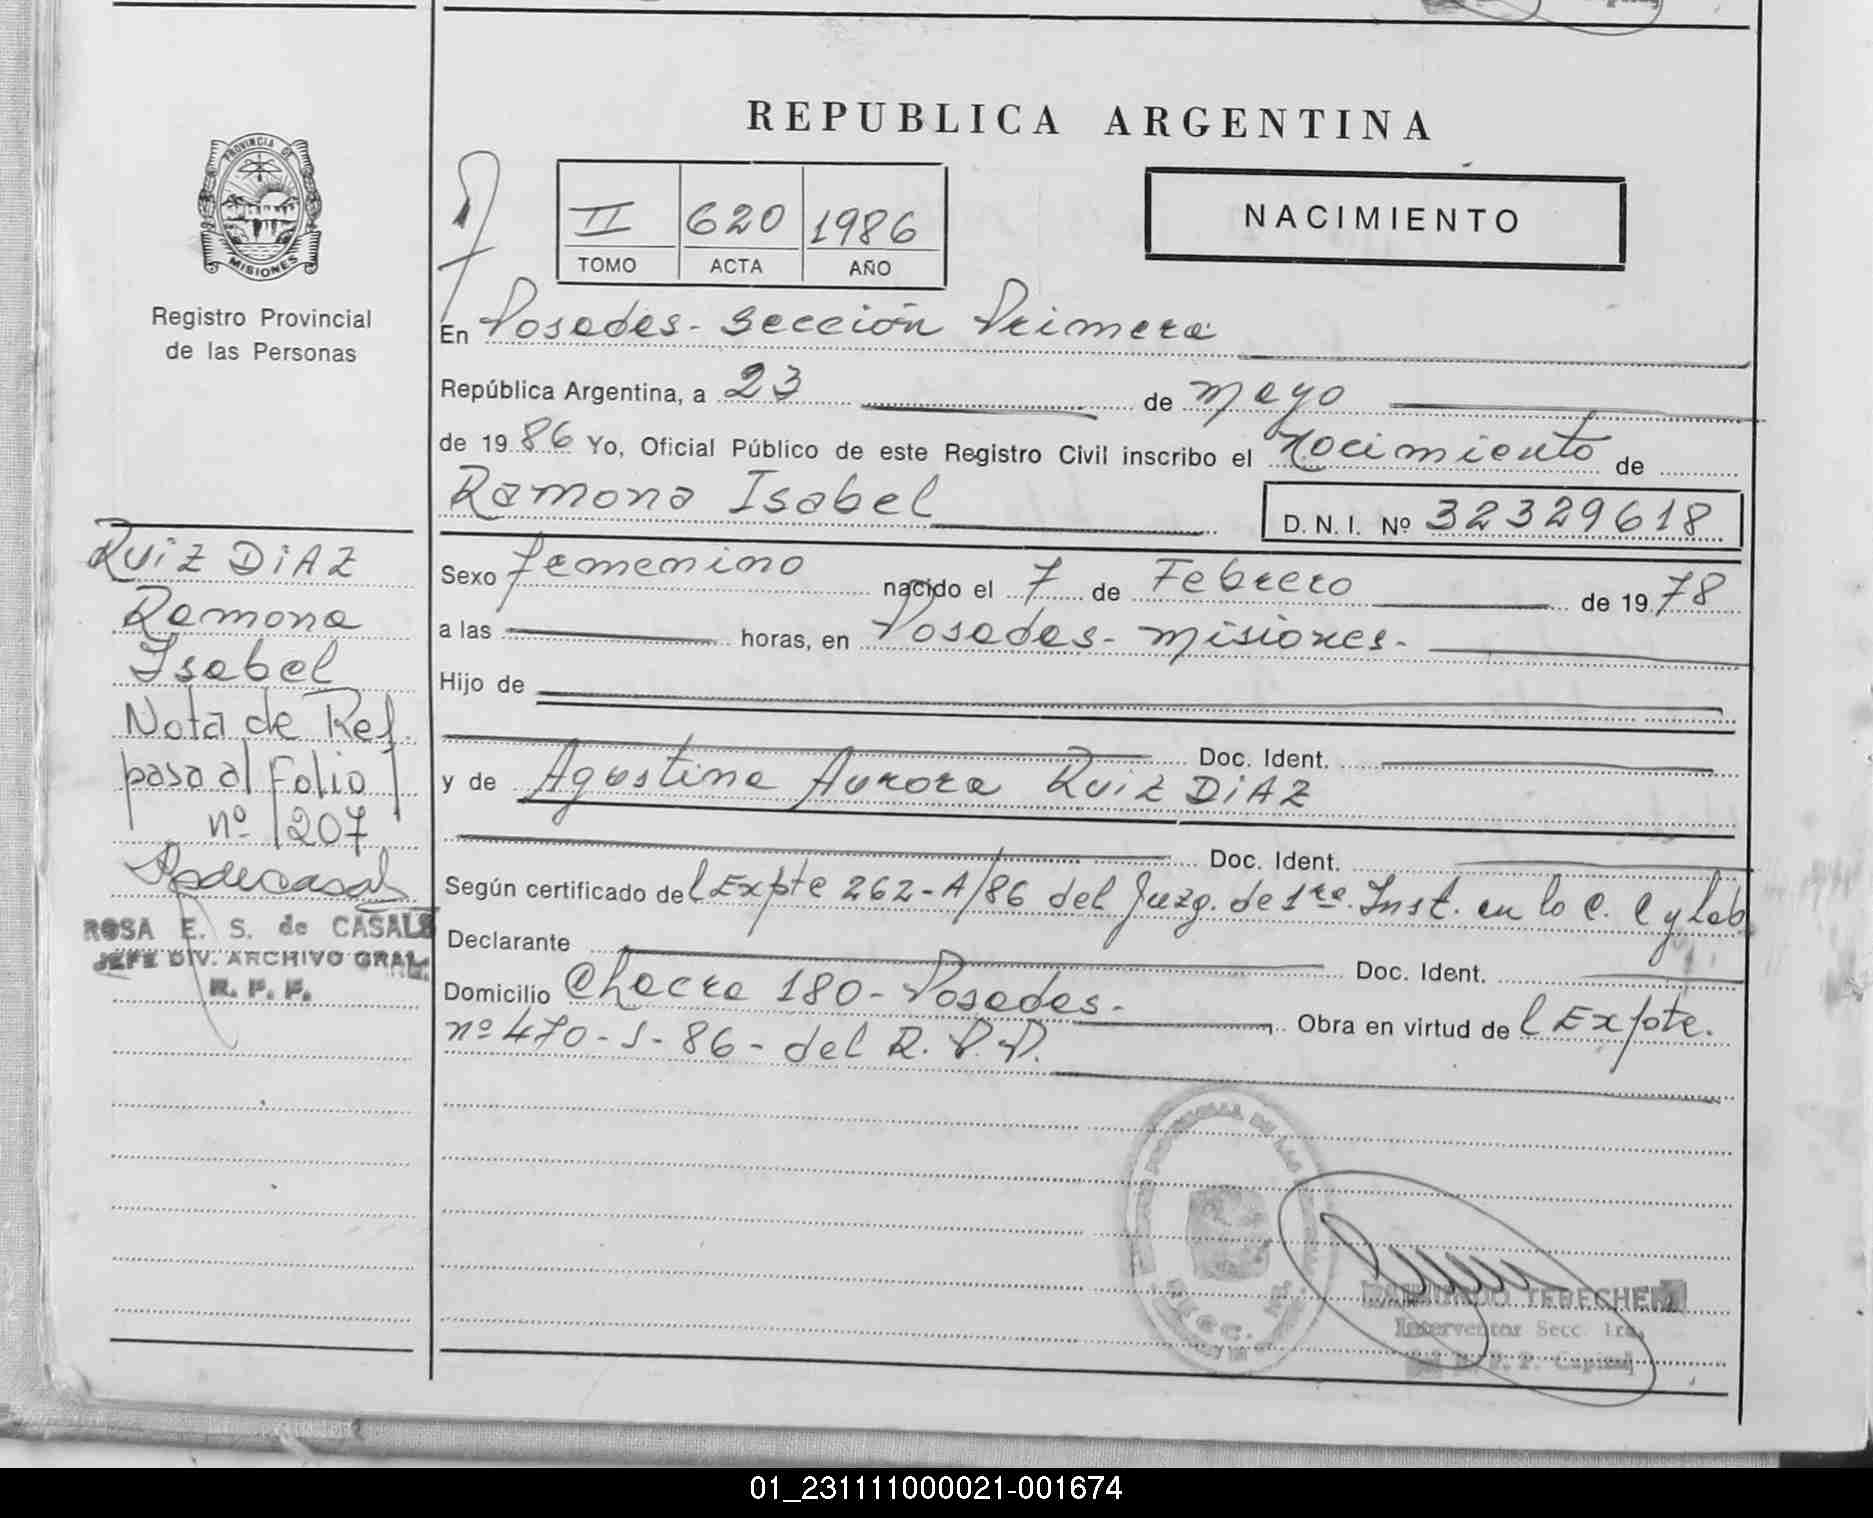 REPUBLICA ARGENTINA
PROVINCIA DE
MISIONES
Registro Provincial
de las Personas
II 620 1986
TOMO ACTA AÑO
NACIMIENTO
En Posadas - Sección Primera
República Argentina, a 23 de mayo
de 19 86 Yo, Oficial Público de este Registro Civil inscribo el Nacimiento de
Ramona Isabel
D. N. I. Nº 32329618
Sexo femenino nacido el 7 de Febrero de 19 78
a las horas, en Posadas - Misiones.
Hijo de
Doc. Ident.
y de Agustina Aurora RUIZ DIAZ
Doc. Ident.
Según certificado del Expte 262-A/86 del Juzg. de 1ra. Inst. en lo C. C y Lab
Declarante Doc. Ident.
Domicilio Chacra 180 - Posadas -
Obra en virtud del Expte.
nº 470-S-86 - del R. P. P.
RUIZ DIAZ
Ramona
Isabel
Nota de Ref.
pasa al Folio
nº 207
ROSA E. S. de CASALS
JEFE DIV. ARCHIVO GRAL.
R. P. P.
TERECHEN
Interventor Secc. 1ra.
R. P. P. Capital
01_231111000021-001674